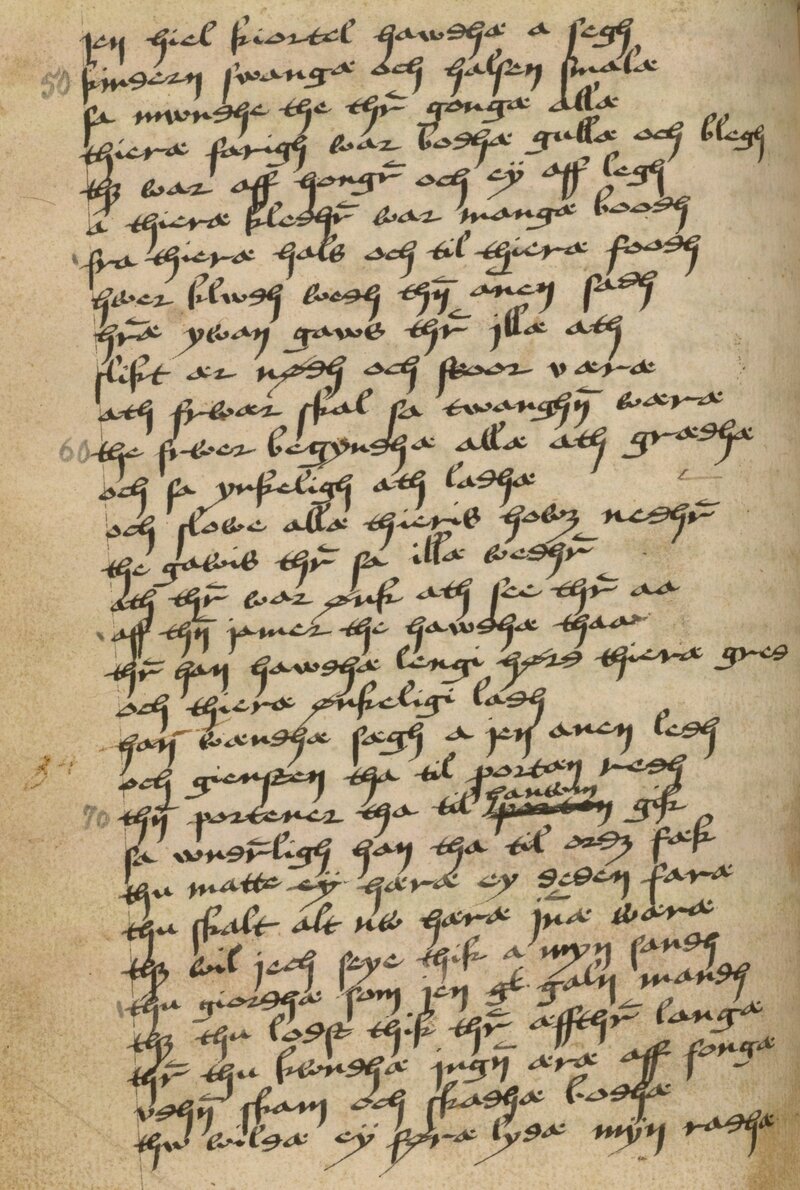 jen hiel kiortel hawdhæ a segh
50 kindern swangæ och halsen smalæ
sa mwndhe the thr̄ gongæ allæ
thieræ farigh war bodhæ gullæ och blegh
thꝫ war aff hongr̄ och eÿ aff legh
a thieræ kledhr̄ war mangæ boodh
fra thieræ hals och til thieræ foodh
hwer klwdh wedh thn̄ anen sadh
hr̄æ ywan gaws thr̄ jllæ ath
slikt ær nødh och stoor væræ
ath frwær skal sa twanghn̄ wæræ
60 the frwer begyndhæ allæ ath grædhæ
och sa ynkeligh ath ladhæ
och slowe allæ thieris howꝫ nedhr̄
the gawis thr̄ sa illæ wedhr̄
ath thr̄ war ønk ath see thr̄ aa
aff thn̄ jamer the hawdhæ thaa
thr̄ han hawdhæ lengi hørd thieræ gred
och thieræ ønkeligi ladh
han wændhæ sægh a jen anen ledh
och giensten tha til portæn redh
70 thn̄ portener tha til hanwm porten gik
sa wndr̄ligh han tha til ordꝫ fæk
thu matte eÿ hæræ ey deden faræ
thu skalt alt nw hæræ jn̄æ wæræ
thꝫ wil jech seye thik a myn sandh
thu giordhæ som jen gl galn mandh
thꝫ thu lodst thik thr̄ æffthr̄ langæ
thr̄ thu kwndhæ jngn̄ æræ aff fongæ
vdhn̄ skam och skadhæ bodhæ
thw wildæ eÿ føræ lydæ mÿn radhæ